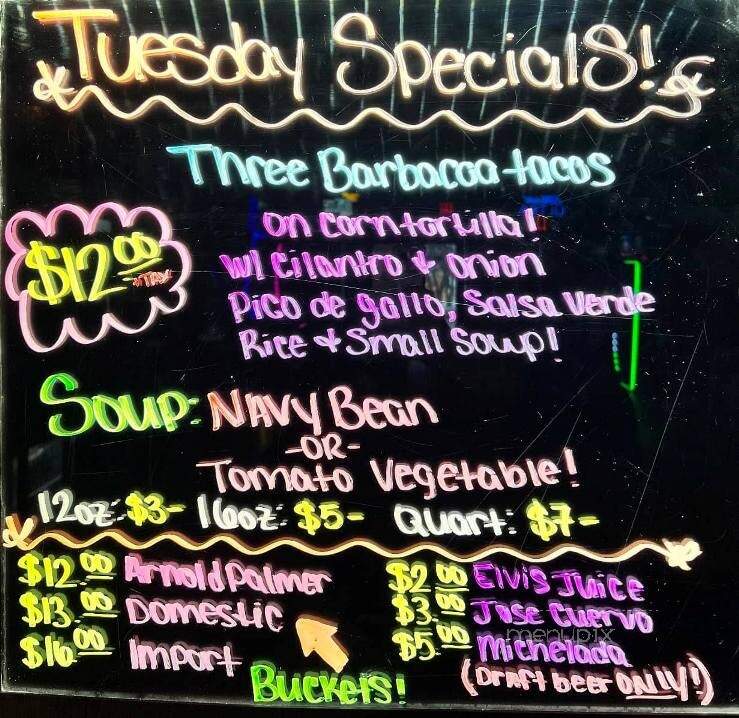 Tuesday Specials!
Three Barbacoa tacos
$12.00 +TAX
on Corn tortilla!
w/ Cilantro & onion
Pico de gallo, Salsa Verde
Rice & Small Soup!
Soup: NAVY Bean
-OR-
Tomato Vegetable!
12oz: $3- 16oz: $5- Quart: $7-
$12.00 Arnold Palmer
$13.00 Domestic
$16.00 Import
Buckets!
$2.00 Elvis Juice
$3.00 Jose Cuervo
$5.00 Michelada
(Draft beer ONLY!)
menupix